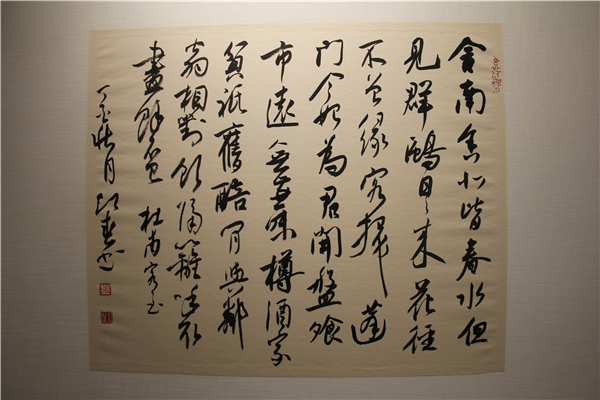 舍南舍北皆春水但
見群鷗日日来花徑
不曾缘客掃蓬
門今始為君開盤飧
市遠無兼味樽酒家
貧祇舊醅肯與鄰
翁相對飲隔籬呼取
盡餘杯 杜甫客至
秋月 书